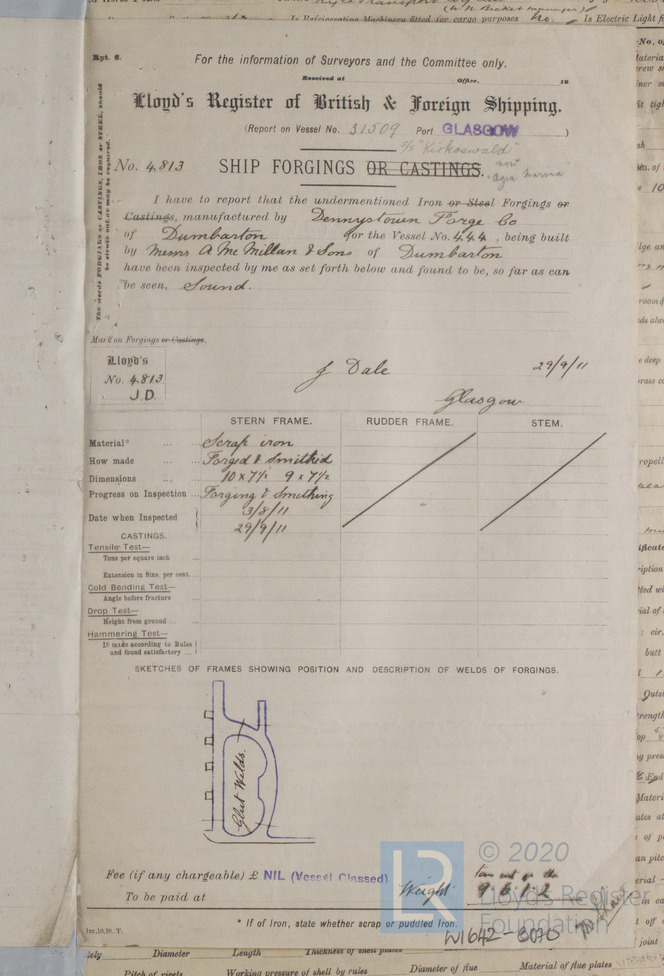 Is Refrigerating Machinery fitted for cargo purposes No. Is Electric Light
Rpt. 6.
For the information of Surveyors and the Committee only.
Received at Office, 19
Lloyd's Register of British & Foreign Shipping.
(Report on Vessel No. 31509 Port GLASGOW )
S/S "Kirkoswald"
now
No. 4,813 SHIP FORGINGS OR CASTINGS.
The words FORGINGS or CASTINGS, IRON or STEEL, should be struck out as may be required.
I have to report that the undermentioned Iron or Steel Forgings or
Castings, manufactured by Dennystown Forge Co
of Dumbarton for the Vessel No. 444, being built
by Messrs A McMillan & Sons of Dumbarton
have been inspected by me as set forth below and found to be, so far as can
be seen, Sound.
Mark on Forgings or Castings.
Lloyd's
No. 4,813
J.D.
J Dale 29/9/11
Glasgow
STERN FRAME. RUDDER FRAME. STEM.
Material* ... Scrap iron
How made ... Forged & Smithed
Dimensions ... 10 x 7½ 9 x 7½
Progress on Inspection ... Forging & Smithing
Date when Inspected { 3/8/11
29/9/11
CASTINGS.
Tensile Test—
Tons per square inch ...
Extension in 8ins. per cent. ...
Cold Bending Test—
Angle before fracture ...
Drop Test—
Height from ground ... ...
Hammering Test—
If made according to Rules
and found satisfactory ...
SKETCHES OF FRAMES SHOWING POSITION AND DESCRIPTION OF WELDS OF FORGINGS.
Glut Welds.
Fee (if any chargeable) £ NIL (Vessel Classed)
Weight 9.6.1.2
To be paid at
* If of Iron, state whether scrap or puddled iron.
1m,10,10. T.
© 2020
LR
Lloyd's Register
Foundation
W1642-0070
Diameter Length Thickness of shell plates
Pitch of rivets Working pressure of shell by rules Diameter of flue Material of flue plates